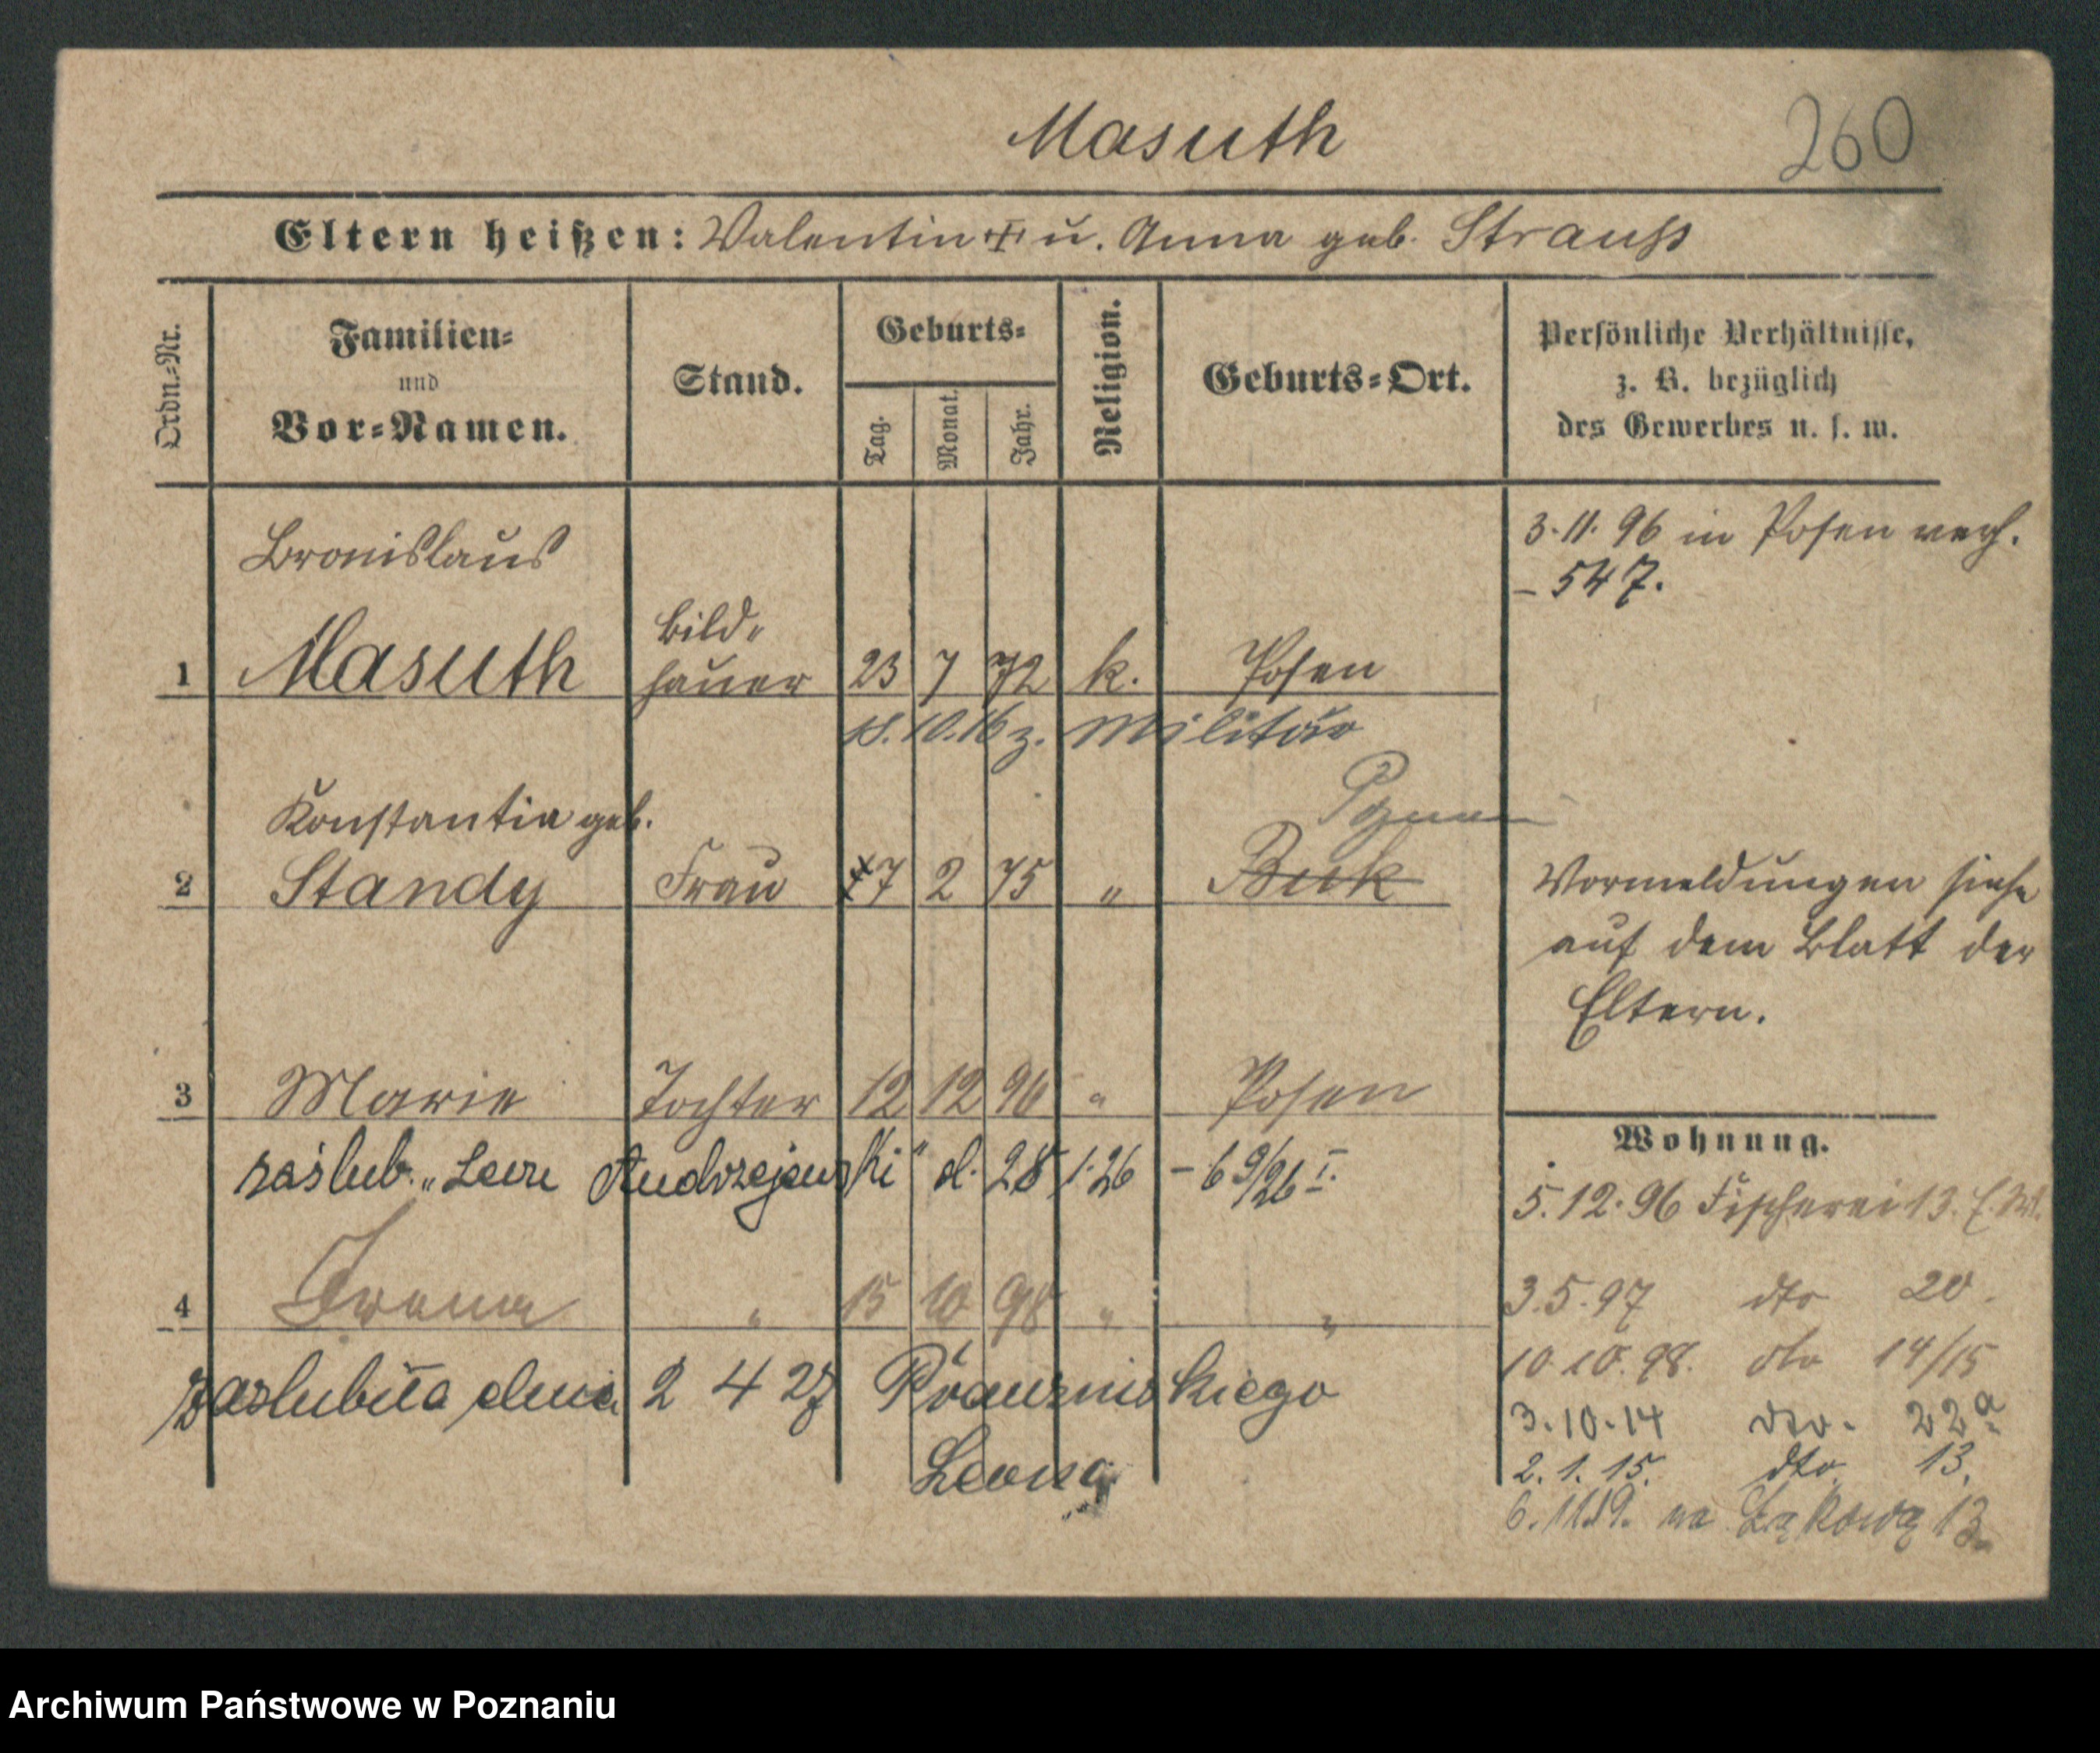 Masuth
260
Eltern heißen: Valentin u. Anna geb. Strauß
Ordn.-Nr.
Familien-
und
Vor-Namen.
Stand.
Geburts-
Tag.
Monat.
Jahr.
Religion.
Geburts-Ort.
Persönliche Verhältnisse,
z. B. bezüglich
des Gewerbes u. s. w.
Bronislaus
3.11.96 in Posen verh.
- 547.
Bild-
1 Masuth hauer 23 7 72 k. Posen
18.10.16 z. Militär
Poznań
Konstantia geb.
2 Standy Frau 7 2 75 " Buk
Vormeldungen siehe
auf dem Blatt der
Eltern.
3 Marie Tochter 12 12 96 " Posen
zaślub. „Leon Andrzejewski" d. 28 1.26 - 69/26 I.
4 Irena " 15 10 98 " "
zaslubiła dnia 2 4 27
Leona
Wohnung.
5.12.96 Fischerei 13.
3.5.97 dto 20.
10.10.98. dto 14/15
3.10.14 dto. 22a
2.1.15. dto. 13.
6.11.19. na Łąkową 13
Archiwum Państwowe w Poznaniu